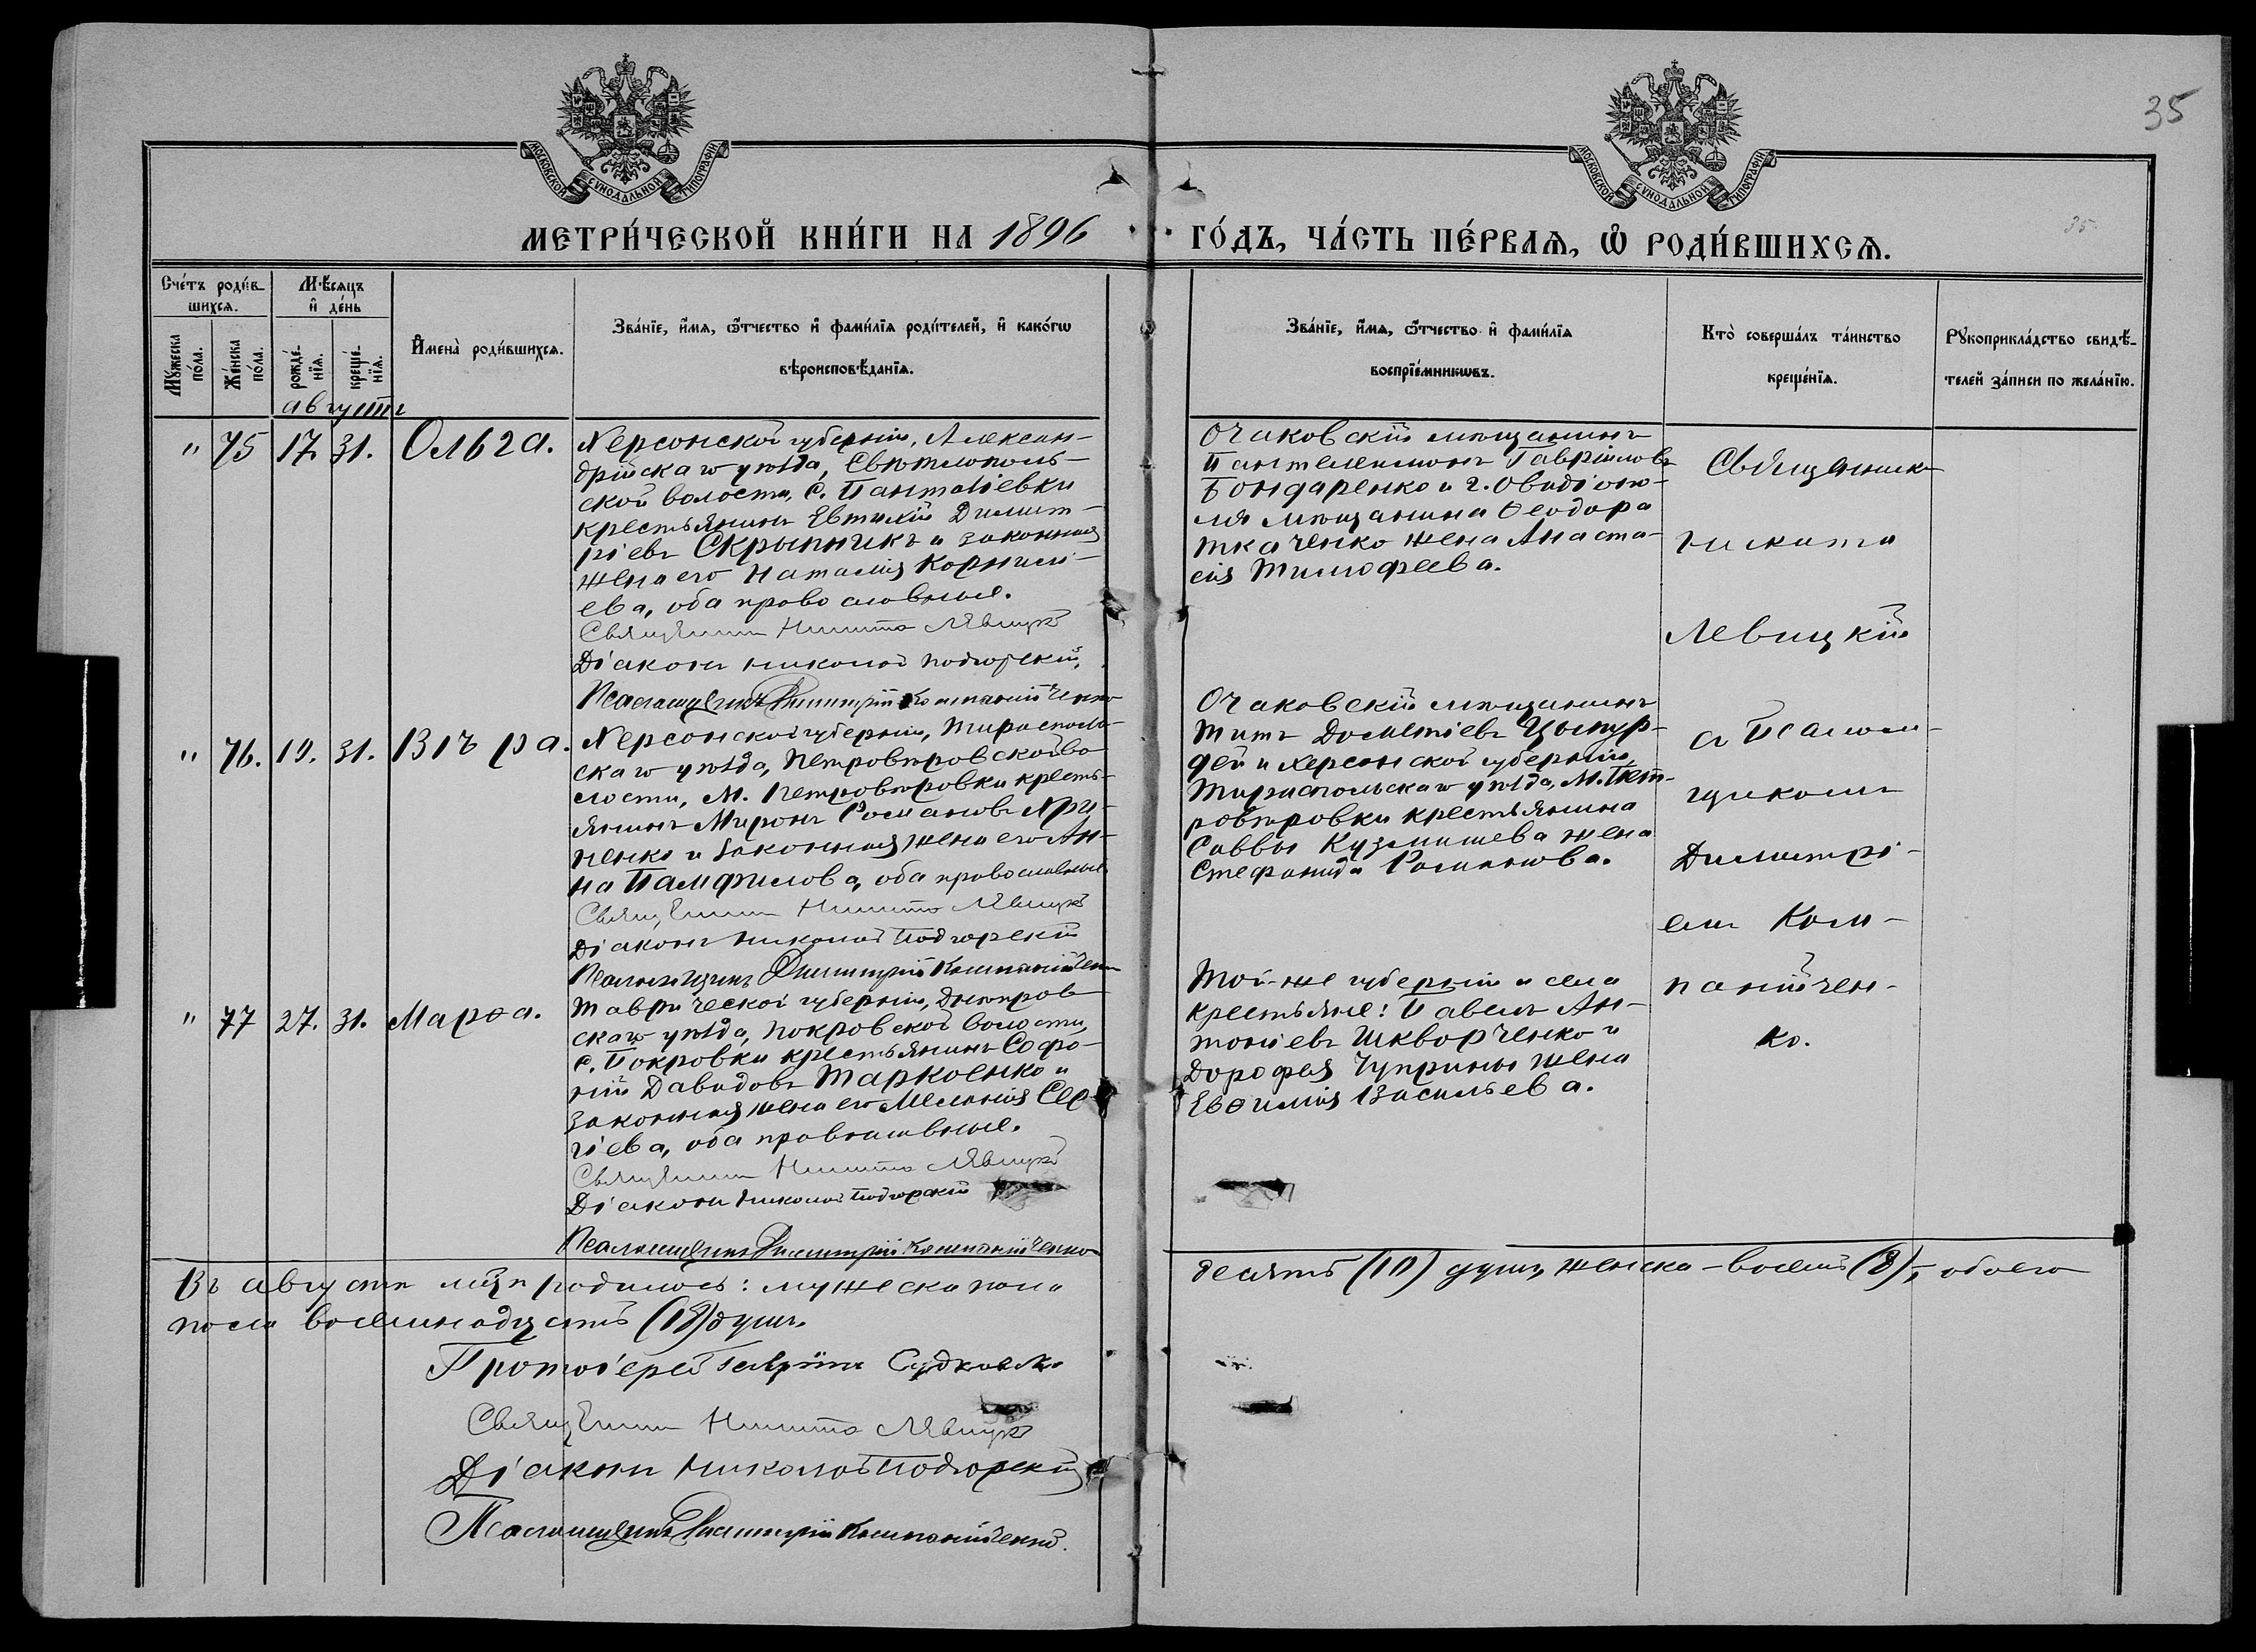 35
МОСКОВСКОЙ СѴНОДАЛЬНОЙ ТИПОГРАФІИ
МОСКОВСКОЙ СѴНОДАЛЬНОЙ ТИПОГРАФІИ
35
МЕТРИ́ЧЕСКОЙ КНИ́ГИ НА 1896
ГО́ДЪ, ЧА́СТЬ ПЕ́РВАѦ, Ѡ҆ РОДИ́ВШИХСѦ.
Сче́тъ роди́в-
шихсѧ.
Мѹ́жеска
по́ла.
Же́нска
по́ла.
Мѣ́сяцъ
и҆ де́нь
рожде́-
нїѧ.
креще́-
нїѧ.
И҆мена̀ роди́вшихсѧ.
Зва́нїе, и҆́мѧ, ѻ҆́тчество и҆ фами́лїѧ роди́телей, и҆ како́гѡ
вѣроисповѣ́данїѧ.
Зва́нїе, и҆́мѧ, ѻ҆́тчество и҆ фами́лїѧ
воспрїе́мникѡвъ.
Кто̀ соверша́лъ та́инство
креще́нїѧ.
Рѹкоприкла́дство свидѣ́-
телей за́писи по жела́нїю.
августъ
" 75 17. 31. Ольга.
Херсонской губерніи, Алексан-
дрійскаго уѣзда, Свѣтлополь-
ской волости, с. Пантаіевки
крестьянинъ Евтихій Димит-
ріевъ Скрыпникъ и законная
жена его Наталія Корнилі-
ева, оба православные.
Священникъ Никита Левицкій
Діаконъ Николай Подгорскій,
Псаломщикъ Димитрій Компанійченко
Очаковскій мѣщанинъ
Пантелеимонъ Гавріиловъ
Бондаренко и г. Овидіопо-
ля мѣщанина Ѳеодора
Ткаченко жена Анаста-
сія Тимофеева.
Священникъ
Никита
Левицкій
съ Псалом-
щикомъ
Димитрі-
емъ Ком-
панійчен-
ко.
" 76. 19. 31. Вѣра.
Херсонской губерніи, Тирасполь-
скаго уѣзда, Петровѣровской во-
лости, м. Петровѣровки кресть-
янинъ Миронъ Романовъ Хри-
ненко и законная жена его Ан-
на Памфилова, оба православные
Священникъ Никита Левицкій
Діаконъ Николай Подгорскій
Псаломщикъ Димитрій Компанійченко
Очаковскій мѣщанинъ
Титъ Дометіевъ Цыпур-
дей и Херсонской губерніи,
Тираспольскаго уѣзда, м. Пет-
ровѣровки крестьянина
Саввы Кузмишева жена
Стефанида Романова.
" 77 27. 31. Марѳа.
Таврической губерніи, Днѣпров-
скаго уѣзда, Покровской волости,
с. Покровки крестьянинъ Софо-
ній Давидовъ Таркоенко и
законная жена его Меланія Сер-
гіева, оба православные.
Священникъ Никита Левицкій
Діаконъ Николай Подгорскій
Псаломщикъ Димитрій Компанійченко
Той-же губерніи и села
крестьяне: Павелъ Ан-
тоніевъ Шкворченко и
Дорофея Чуприны жена
Евѳимія Васильева.
Въ августѣ мѣц҃ѣ родилось: мужеска пола
десять (10) душъ, женска - восемь (8), - обоего
пола восемнадцать (18) душъ.
Протоіерей Гавріилъ Судковскі
Священникъ Никита Левицкій
Діаконъ Николай Подгорскій
Псаломщикъ Димитрій Компанійченко.